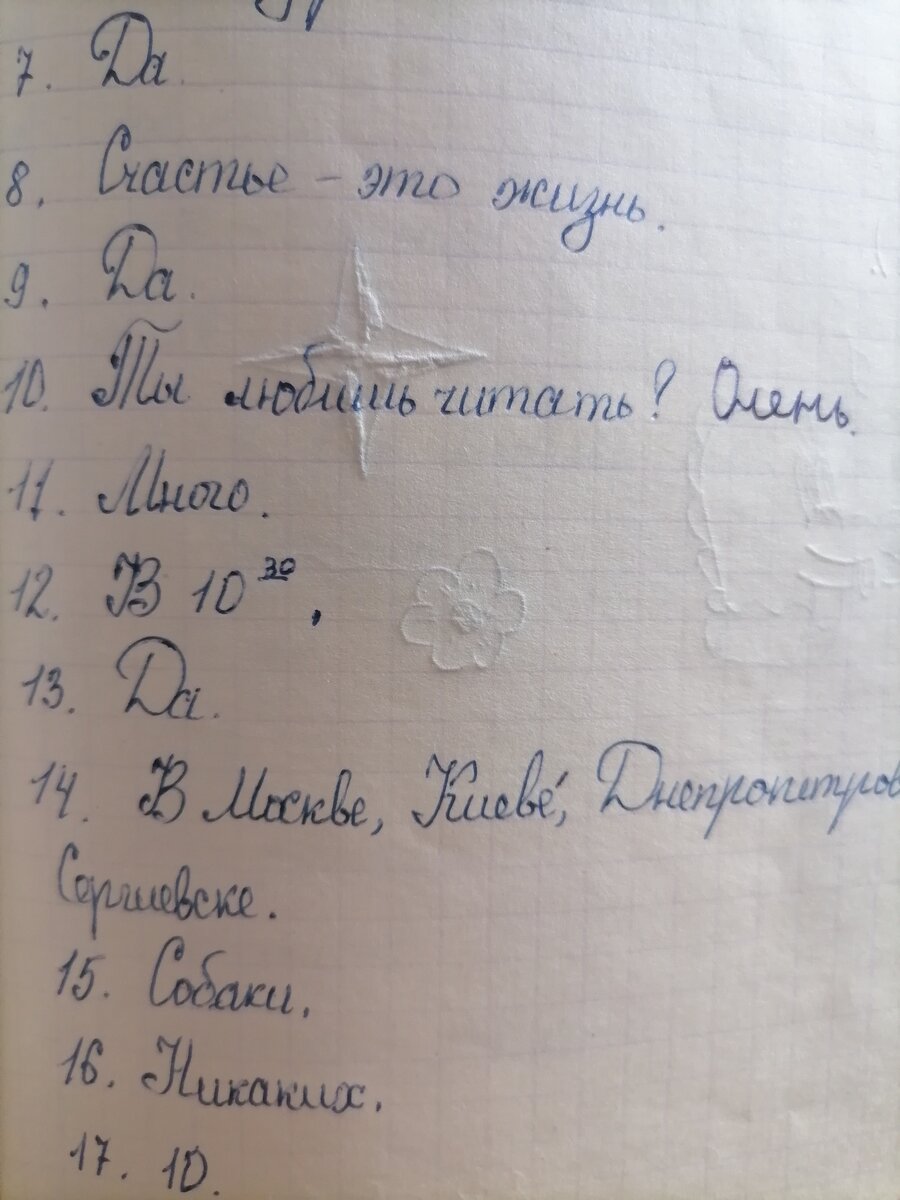 7. Да.
8. Счастье – это жизнь.
9. Да.
10. Ты любишь читать? Очень.
11. Много.
12. В 10³⁰.
13. Да.
14. В Москве, Киеве, Днепропетров
Сергиевске.
15. Собаки.
16. Никаких.
17. 10.